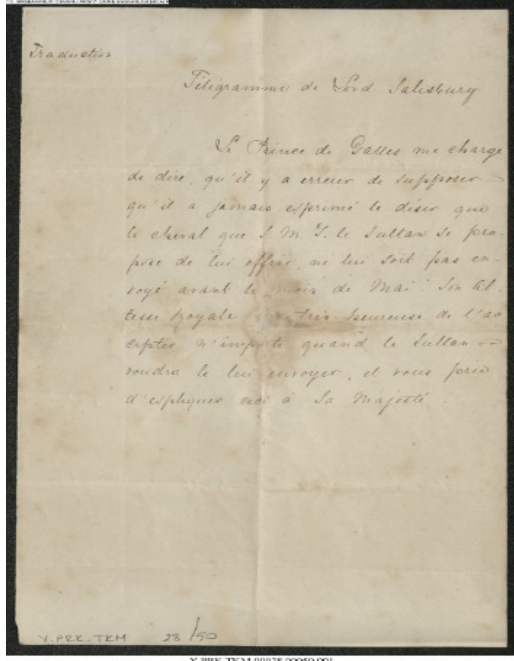 Traduction
Télégramme de Lord Salisbury
Le Prince de Galles me charge
de dire, qu'il y a erreur de supposer
qu'il a jamais exprimé le désir que
le cheval que S. M. I. le Sultan se pro-
pose de lui offrir, ne lui soit pas en-
voyé avant le mois de Mai. Son Al-
tesse Royale très heureuse de l'ac-
cepter n'importe quand le Sultan
voudra le lui envoyer, et vous prie
d'expliquer ceci à Sa Majesté.
Y. PRK. TKM 28/50